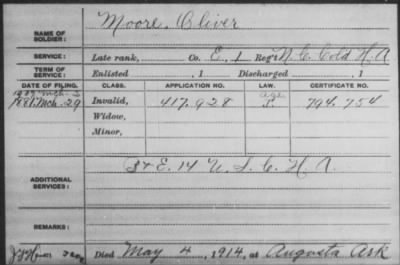 NAME OF SOLDIER: Moore, Oliver
SERVICE: Late rank, Co. E, 1 Reg't N. C. Cold H. A.
TERM OF SERVICE: Enlisted , 1 Discharged , 1
DATE OF FILING. CLASS. APPLICATION NO. LAW. CERTIFICATE NO.
Mch. age
1881 Mch. 29 Invalid, 417.928 S. 794.754
Widow,
Minor,
ADDITIONAL SERVICES: & E. 14 U. S. C. H. A.
REMARKS:
Died May 4, 1914, at Augusta Ark